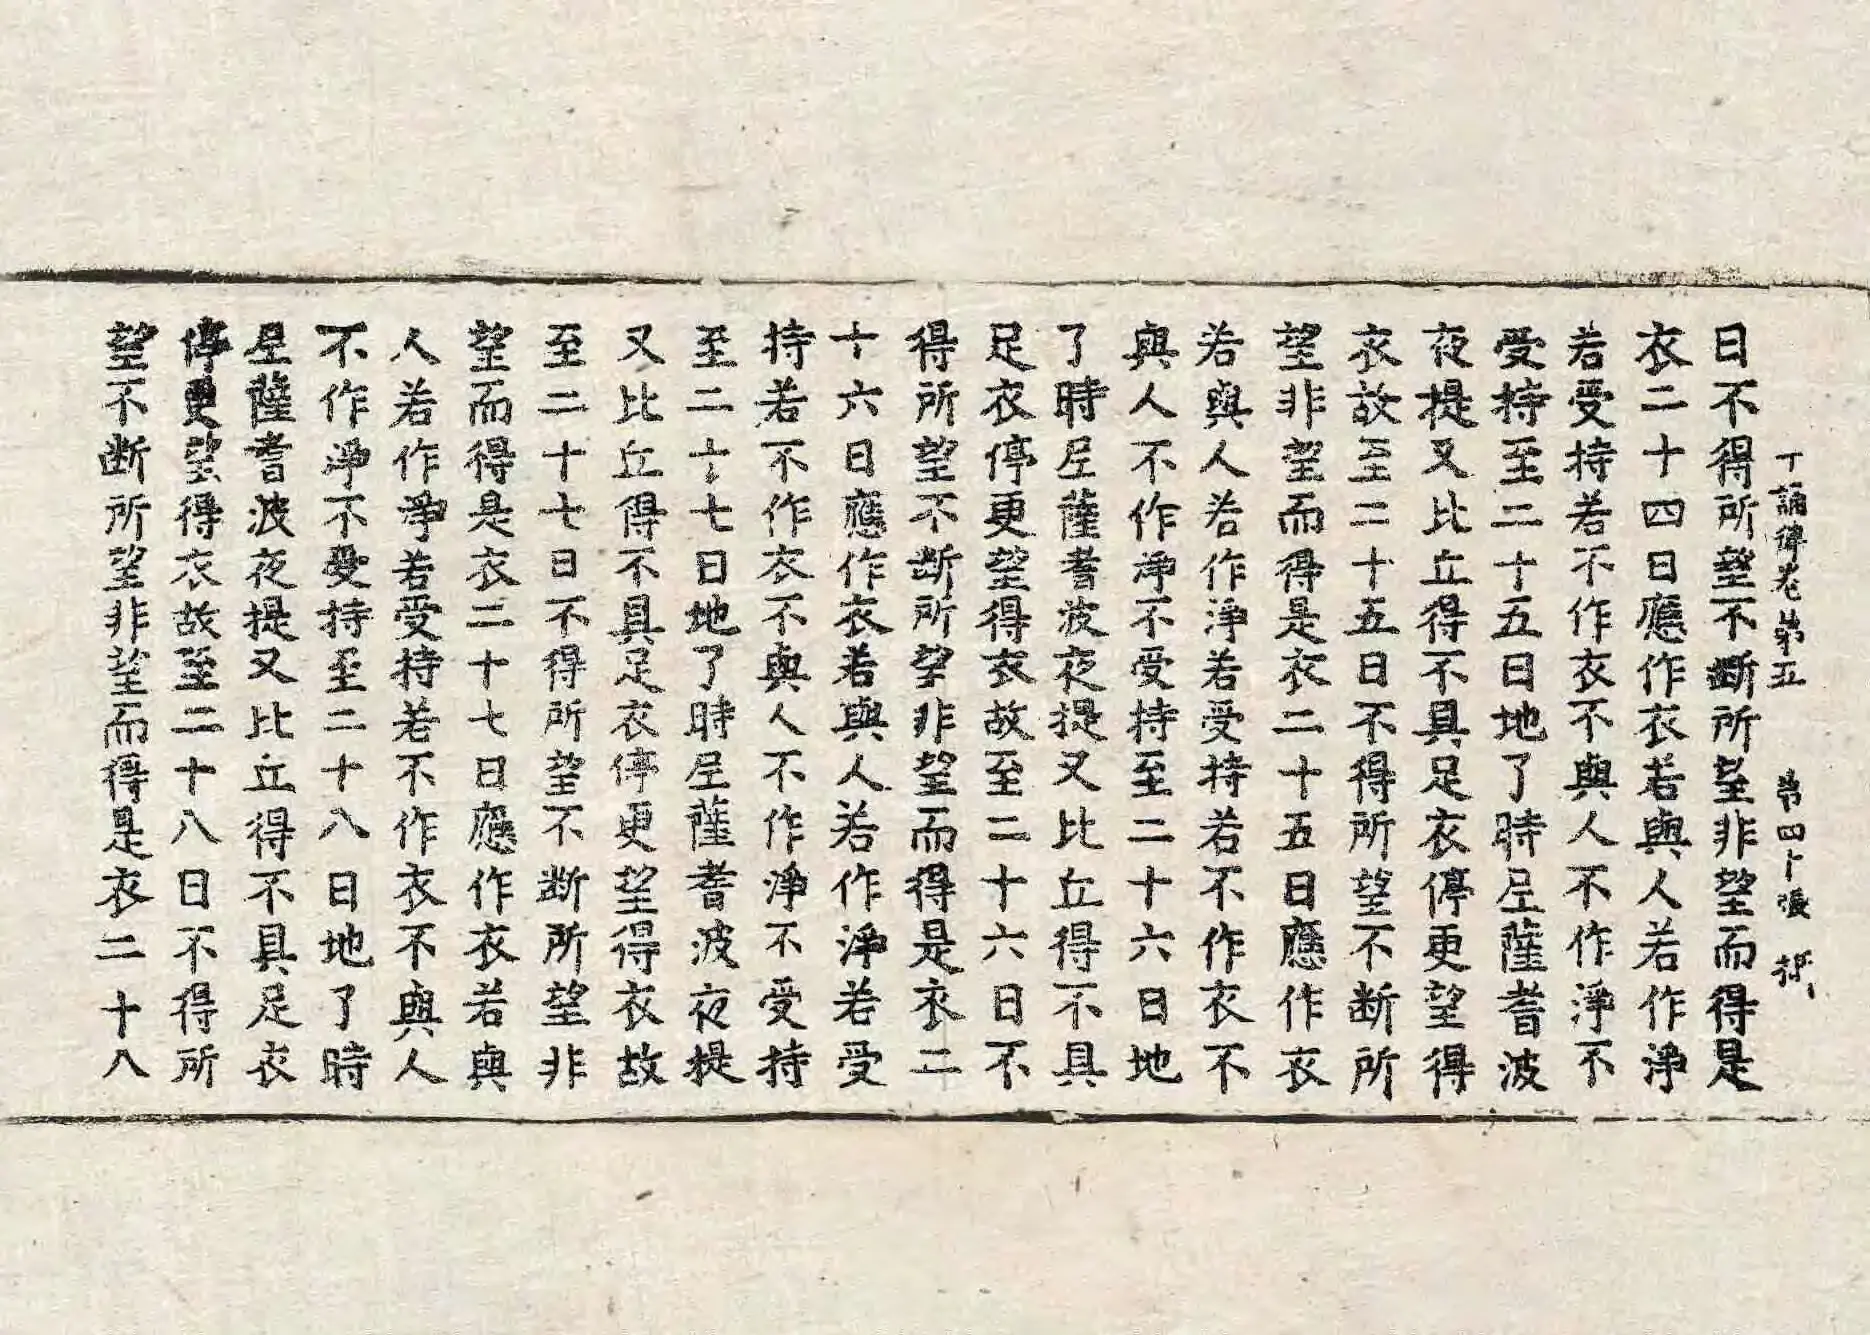 十誦律卷第五　第四十張
日不得所望不斷所望非望而得是
衣二十四日應作衣若與人若作淨
若受持若不作衣不與人不作淨不
受持至二十五日地了時尼薩耆波
夜提又比丘得不具足衣停更望得
衣故至二十五日不得所望不斷所
望非望而得是衣二十五日應作衣
若與人若作淨若受持若不作衣不
與人不作淨不受持至二十六日地
了時尼薩耆波夜提又比丘得不具
足衣停更望得衣故至二十六日不
得所望不斷所望非望而得是衣二
十六日應作衣若與人若作淨若受
持若不作衣不與人不作淨不受持
至二十七日地了時尼薩耆波夜提
又比丘得不具足衣停更望得衣故
至二十七日不得所望不斷所望非
望而得是衣二十七日應作衣若與
人若作淨若受持若不作衣不與人
不作淨不受持至二十八日地了時
尼薩耆波夜提又比丘得不具足衣
停更望得衣故至二十八日不得所
望不斷所望非望而得是衣二十八